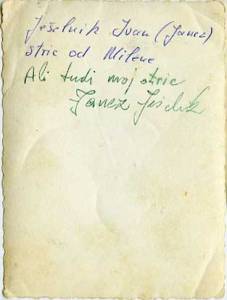 Ješelnik Ivan (Janez)
stric od Milene
Ali tudi moj stric
Janez Ješelnik